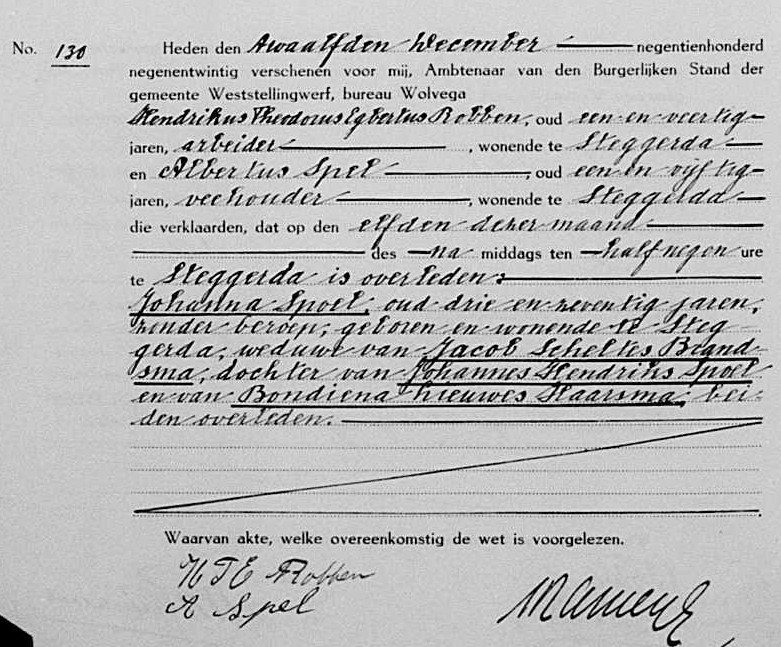 No. 130 Heden den Twaalfden December negentienhonderd
negenentwintig verschenen voor mij, Ambtenaar van den Burgerlijken Stand der
gemeente Weststellingwerf, bureau Wolvega
Hendrikus Theodorus Egbertus Robben, oud een en veertig
jaren, arbeider, wonende te Steggerda
en Albertus Spel, oud een en vijftig
jaren, veehouder, wonende te Steggerda
die verklaarden, dat op den elfden dezer maand
des na middags ten half negen ure
te Steggerda is overleden:
Johanna Spoel, oud drie en zeventig jaren,
zonder beroep, geboren en wonende te Steg-
gerda, weduwe van Jacob Scheltes Brand-
sma, dochter van Johannes Hendriks Spoel
en van Bondiena Nieuwes Haarsma, bei-
den overleden.
Waarvan akte, welke overeenkomstig de wet is voorgelezen.
H T E Robben
A Spel